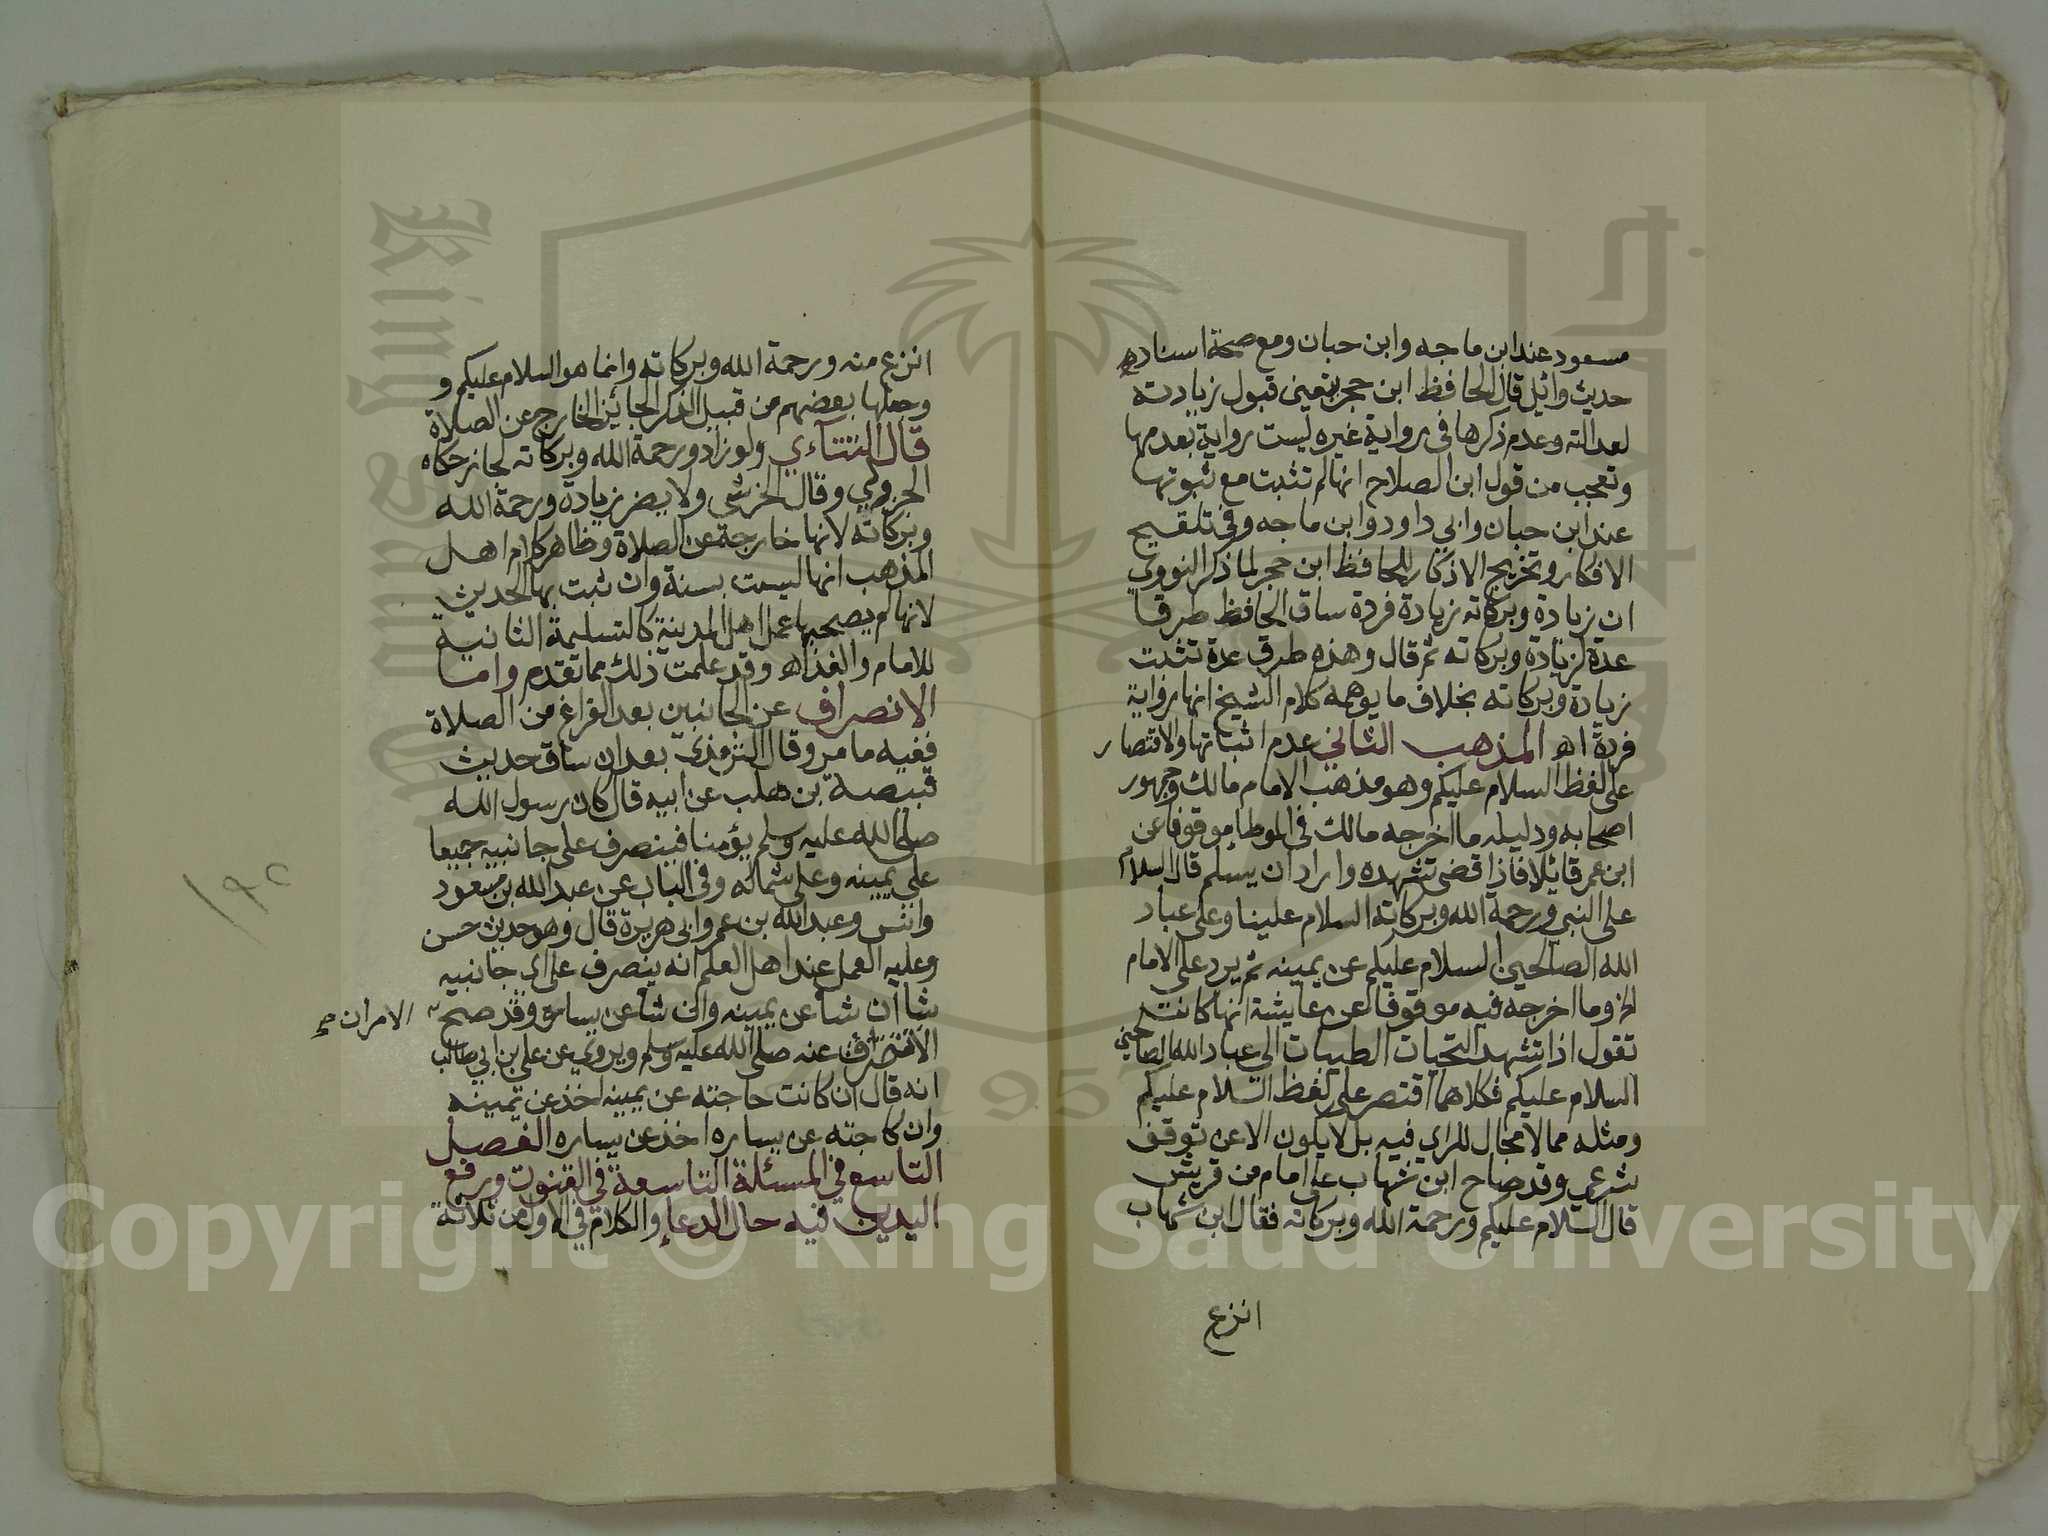 مسعود عند ابن ماجه وابن حبان ومع صحة اسناده
حديث وائل قال الحافظ ابن حجر يتعين قبول زيادته
لعدالته وعدم ذكرها في رواية غيره ليست رواية بعدمها
وتعجب من قول ابن الصلاح انها لم تثبت مع ثبوتها
عند ابن حبان وابي داود وابن ماجه وفي تلقيح
الافكار وتخريج الاذكار للحافظ ابن حجر لما ذكر النووي
ان زيادة وبركاته زيادة فردة ساق الحافظ طرقا
عدة لزيادة وبركاته ثم قال وهذه طرق عدة تثبت
زيادة وبركاته بخلاف ما يوهمه كلام الشيخ انها رواية
فردة اه المذهب الثاني عدم اثباتها والاقتصار
على لفظ السلام عليكم وهو مذهب الامام مالك وجمهور
اصحابه ودليله ما اخرجه مالك في الموطا موقوفا عن
ابن عمر قائلا فاذا قضى تشهده واراد ان يسلم قال السلام
على النبي ورحمة الله وبركاته السلام علينا وعلى عباد
الله الصالحين السلام عليكم عن يمينه ثم يرد على الامام
الخ وما اخرجه فيه موقوفا عن عايشة انها كانت
تقول اذا تشهد التحيات الطيبات الى عباد الله الصالحين
السلام عليكم فكلاهما اقتصر على لفظ السلام عليكم
ومثله مما لا مجال للراي فيه بل لا يكون الا عن توقف
شرعي وقد صاح ابن شهاب على امام من قريش
قال السلام عليكم ورحمة الله وبركاته فقال ابن شهاب
انزع
انزع منه ورحمة الله وبركاته وانما هو السلام عليكم و
وجعلها بعضهم من قبيل الذكر الجائز الخارج عن الصلاة
قال التتآءي ولو زاد ورحمة الله وبركاته لجاز حكاه
الجزولي وقال الخرشي ولا يضر زيادة ورحمة الله
وبركاته لانها خارجة عن الصلاة وظاهر كلام اهل
المذهب انها ليست بسنة وان ثبت بها الحديث
لانها لم يصحبها عمل اهل المدينة كالتسليمة الثانية
للامام والفذ اه وقد علمت ذلك مما تقدم واما
الانصراف عن الجانبين بعد الفراغ من الصلاة
ففيه ما مر وقال الترمذي بعد ان ساق حديث
قبيصة بن هلب عن ابيه قال كان رسول الله
صلى الله عليه وسلم يؤمنا فينصرف على جانبيه جميعا
على يمينه وعلى شماله وفي الباب عن عبد الله بن مسعود
وانس وعبد الله بن عمر وابي هريرة قال وهو حديث حسن
وعليه العمل عند اهل العلم انه ينصرف على اي جانبيه
شا ان شا عن يمينه وان شا عن يساره وقد صح
الامران صح
عنه صلى الله عليه وسلم ويروى عن علي بن ابي طالب
انه قال ان كانت حاجته عن يمينه اخذ عن يمينه
وان كا جته عن يساره اخذ عن يساره الفصل
التاسع في المسئلة التاسعة في القنوت ورفع
اليدين فيه حال الدعاء والكلام في الاول من ثلاثة
١٩٢
King Saud University
1957
Copyright © King Saud University